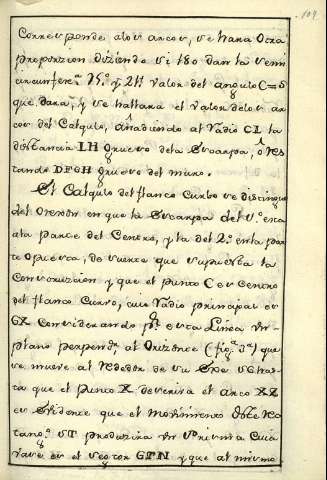 109
Corresponde alos arcos, se hara Otra
proporzion diziendo si 180 dan la semi
circunferᵃ 15.° y 2|1 valor del angulo C = δ
que dara, y se hallara el valor delos ar
cos del Calculo, añadiendo al Radio CL la
distancia LH grueso dela Escarpa, ô Res
tando DFGH grueso del muro.
El Calculo del flanco Curbo se distingue
del Orexon en que la Escarpa del 1.° esta
ala parte del Centro, y la del 2.° enla par
te Opuesta, de suerte que supuesta la
Construizion y que el punto C es Centro
del flanco Curvo, cuio Radio principal es
GX Considerando pʳ esta Linea Un
plano perpendʳ al Orizonte (figᵃ 3ᵃ) que
se mueve al Rededor de su Exe
ta que el punto X descriva el arco XZ
es evidente que el movimiento deste Rec
tangᵒ ST produzira Un prisma Cuia
vase es el sector GPN y que al mismo